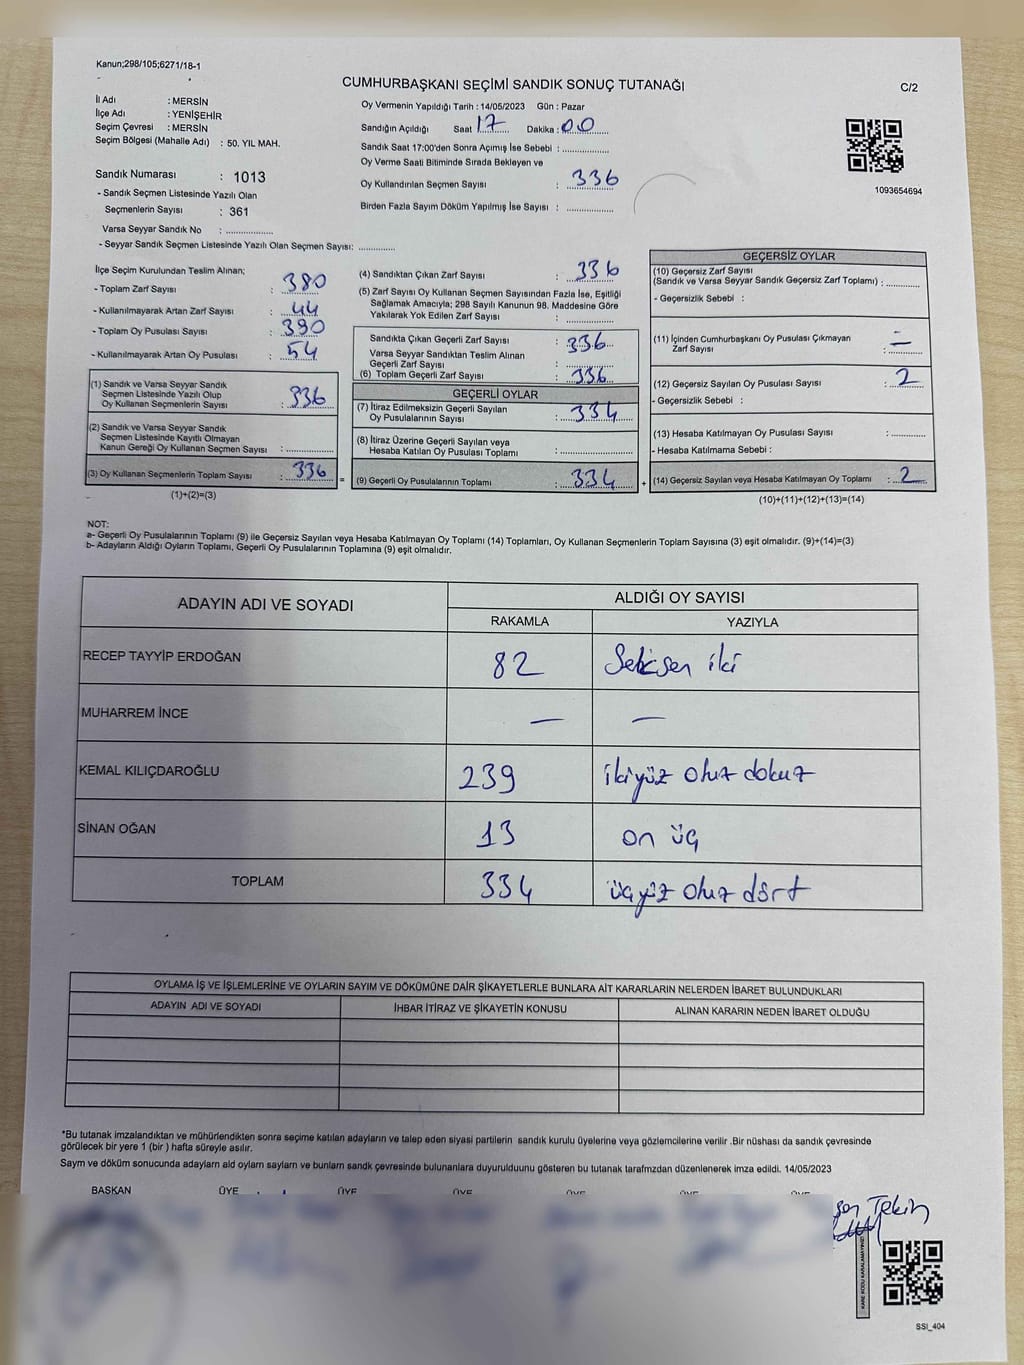 Kanun;298/105;6271/18-1
CUMHURBAŞKANI SEÇİMİ SANDIK SONUÇ TUTANAĞI
C/2
İl Adı : MERSİN
İlçe Adı : YENİŞEHİR
Seçim Çevresi : MERSİN
Seçim Bölgesi (Mahalle Adı) : 50. YIL MAH.
Oy Vermenin Yapıldığı Tarih : 14/05/2023 Gün : Pazar
Sandığın Açıldığı Saat 17 Dakika : 00
Sandık Saat 17:00'den Sonra Açımış İse Sebebi : ..............
Oy Verme Saati Bitiminde Sırada Bekleyen ve
Oy Kullandırılan Seçmen Sayısı : 336
Birden Fazla Sayım Döküm Yapılmış İse Sayısı : ..............
1093654694
Sandık Numarası : 1013
- Sandık Seçmen Listesinde Yazılı Olan
Seçmenlerin Sayısı : 361
Varsa Seyyar Sandık No : ..............
- Seyyar Sandık Seçmen Listesinde Yazılı Olan Seçmen Sayısı: ...........
İlçe Seçim Kurulundan Teslim Alınan;
- Toplam Zarf Sayısı : 380
- Kullanılmayarak Artan Zarf Sayısı : 44
- Toplam Oy Pusulası Sayısı : 390
- Kullanılmayarak Artan Oy Pusulası : 54
(1) Sandık ve Varsa Seyyar Sandık
Seçmen Listesinde Yazılı Olup
Oy Kullanan Seçmenlerin Sayısı : 336
(2) Sandık ve Varsa Seyyar Sandık
Seçmen Listesinde Kayıtlı Olmayan
Kanun Gereği Oy Kullanan Seçmen Sayısı : ..............
(3) Oy Kullanan Seçmenlerin Toplam Sayısı : 336 =
(1)+(2)=(3)
(4) Sandıktan Çıkan Zarf Sayısı : 336
(5) Zarf Sayısı Oy Kullanan Seçmen Sayısından Fazla İse, Eşitliği
Sağlamak Amacıyla; 298 Sayılı Kanunun 98. Maddesine Göre
Yakılarak Yok Edilen Zarf Sayısı : ..............
Sandıkta Çıkan Geçerli Zarf Sayısı : 336
Varsa Seyyar Sandıktan Teslim Alınan
Geçerli Zarf Sayısı : ..............
(6) Toplam Geçerli Zarf Sayısı : 336
GEÇERLİ OYLAR
(7) İtiraz Edilmeksizin Geçerli Sayılan
Oy Pusulalarının Sayısı : 334
(8) İtiraz Üzerine Geçerli Sayılan veya
Hesaba Katılan Oy Pusulası Toplamı : ..............
(9) Geçerli Oy Pusulalarının Toplamı : 334 +
GEÇERSİZ OYLAR
(10) Geçersiz Zarf Sayısı
(Sandık ve Varsa Seyyar Sandık Geçersiz Zarf Toplamı) : ...........
- Geçersizlik Sebebi :
(11) İçinden Cumhurbaşkanı Oy Pusulası Çıkmayan
Zarf Sayısı : —
(12) Geçersiz Sayılan Oy Pusulası Sayısı : 2
- Geçersizlik Sebebi :
(13) Hesaba Katılmayan Oy Pusulası Sayısı : ...........
- Hesaba Katılmama Sebebi :
(14) Geçersiz Sayılan veya Hesaba Katılmayan Oy Toplamı : 2
(10)+(11)+(12)+(13)=(14)
NOT:
a- Geçerli Oy Pusulalarının Toplamı (9) ile Geçersiz Sayılan veya Hesaba Katılmayan Oy Toplamı (14) Toplamları, Oy Kullanan Seçmenlerin Toplam Sayısına (3) eşit olmalıdır. (9)+(14)=(3)
b- Adayların Aldığı Oyların Toplamı, Geçerli Oy Pusulalarının Toplamına (9) eşit olmalıdır.
ADAYIN ADI VE SOYADI
ALDIĞI OY SAYISI
RAKAMLA YAZIYLA
RECEP TAYYİP ERDOĞAN 82 Seksen iki
MUHARREM İNCE — —
KEMAL KILIÇDAROĞLU 239 ikiyüz otuz dokuz
SİNAN OĞAN 13 on üç
TOPLAM 334 üçyüz otuz dört
OYLAMA İŞ VE İŞLEMLERİNE VE OYLARIN SAYIM VE DÖKÜMÜNE DAİR ŞİKAYETLERLE BUNLARA AİT KARARLARIN NELERDEN İBARET BULUNDUKLARI
ADAYIN ADI VE SOYADI İHBAR İTİRAZ VE ŞİKAYETİN KONUSU ALINAN KARARIN NEDEN İBARET OLDUĞU
*Bu tutanak imzalandıktan ve mühürlendikten sonra seçime katılan adayların ve talep eden siyasi partilerin sandık kurulu üyelerine veya gözlemcilerine verilir .Bir nüshası da sandık çevresinde
görülecek bir yere 1 (bir ) hafta süreyle asılır.
Saym ve döküm sonucunda adaylarn ald oylarn saylarn ve bunlarn sandk çevresinde bulunanlara duyurulduunu gösteren bu tutanak tarafmzdan düzenlenerek imza edildi. 14/05/2023
BAŞKAN ÜYE ÜYE ÜYE ÜYE ÜYE ÜYE
Tekin
KARE KODU KARALAMAYINIZ!
SSI_404